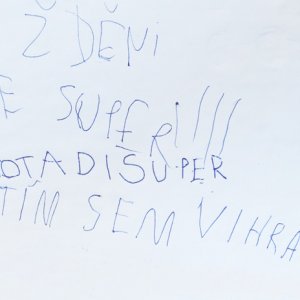 ŽDĚNI
E SUPER!!!!
OTADISUPER
TÍM SEM VIHRA